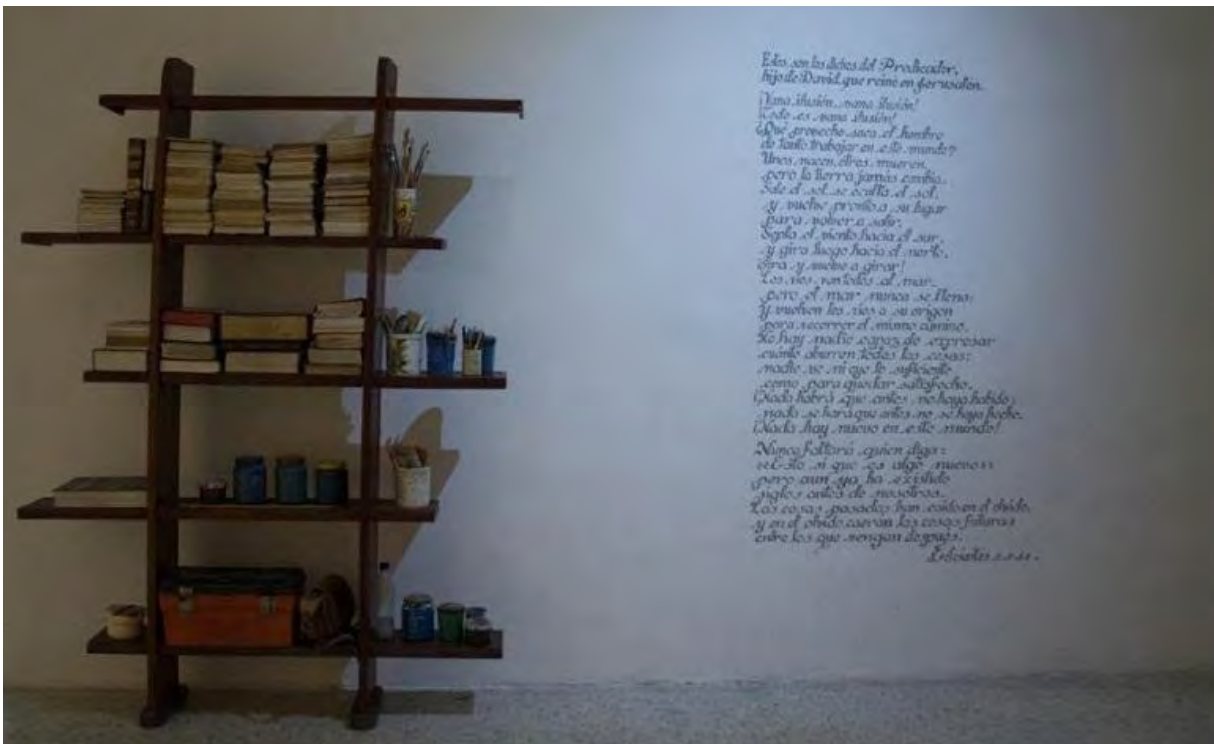 Estos son los dichos del Predicador,
hijo de David, que reinó en Jerusalén.
¡Vana ilusión, vana ilusión!
¡Todo es vana ilusión!
¿Qué provecho saca el hombre
de tanto trabajar en este mundo?
Unos nacen, otros mueren,
pero la tierra jamás cambia.
Sale el sol, se oculta el sol,
y vuelve pronto a su lugar
para volver a salir.
Sopla el viento hacia el sur,
y gira luego hacia el norte.
¡Gira y vuelve a girar!
Los ríos van todos al mar,
pero el mar nunca se llena;
y vuelven los ríos a su origen
para recorrer el mismo camino.
No hay nadie capaz de expresar
cuánto aburren todas las cosas;
nadie ve ni oye lo suficiente
como para quedar satisfecho.
¡Nada habrá que antes no haya habido;
nada se hará que antes no se haya hecho.
¡Nada hay nuevo en este mundo!
Nunca faltará quien diga:
«¡Esto sí que es algo nuevo!»
pero aun ya ha existido
siglos antes de nosotros.
Las cosas pasadas han caído en el olvido,
y en el olvido caerán las cosas futuras
entre los que vengan después.
Eclesiastés